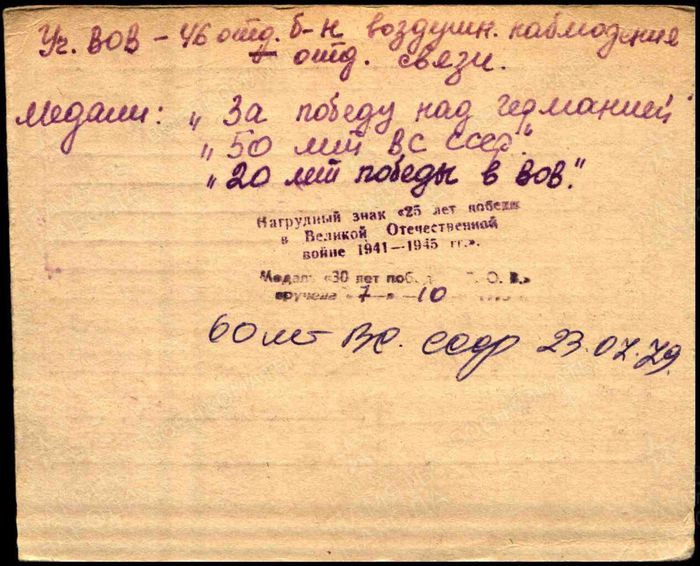 Уч. ВОВ – 46 отд. б-н воздушн. наблюдения
отд. связи.
Медали: „За победу над Германией"
„50 лет ВС СССР."
„20 лет победы в ВОВ."
Нагрудный знак «25 лет победы
в Великой Отечественной
войне 1941—1945 гг.».
Медаль «30 лет поб О. В.»
вручена «7» 10
60 лет ВС. СССР 23.07.79.